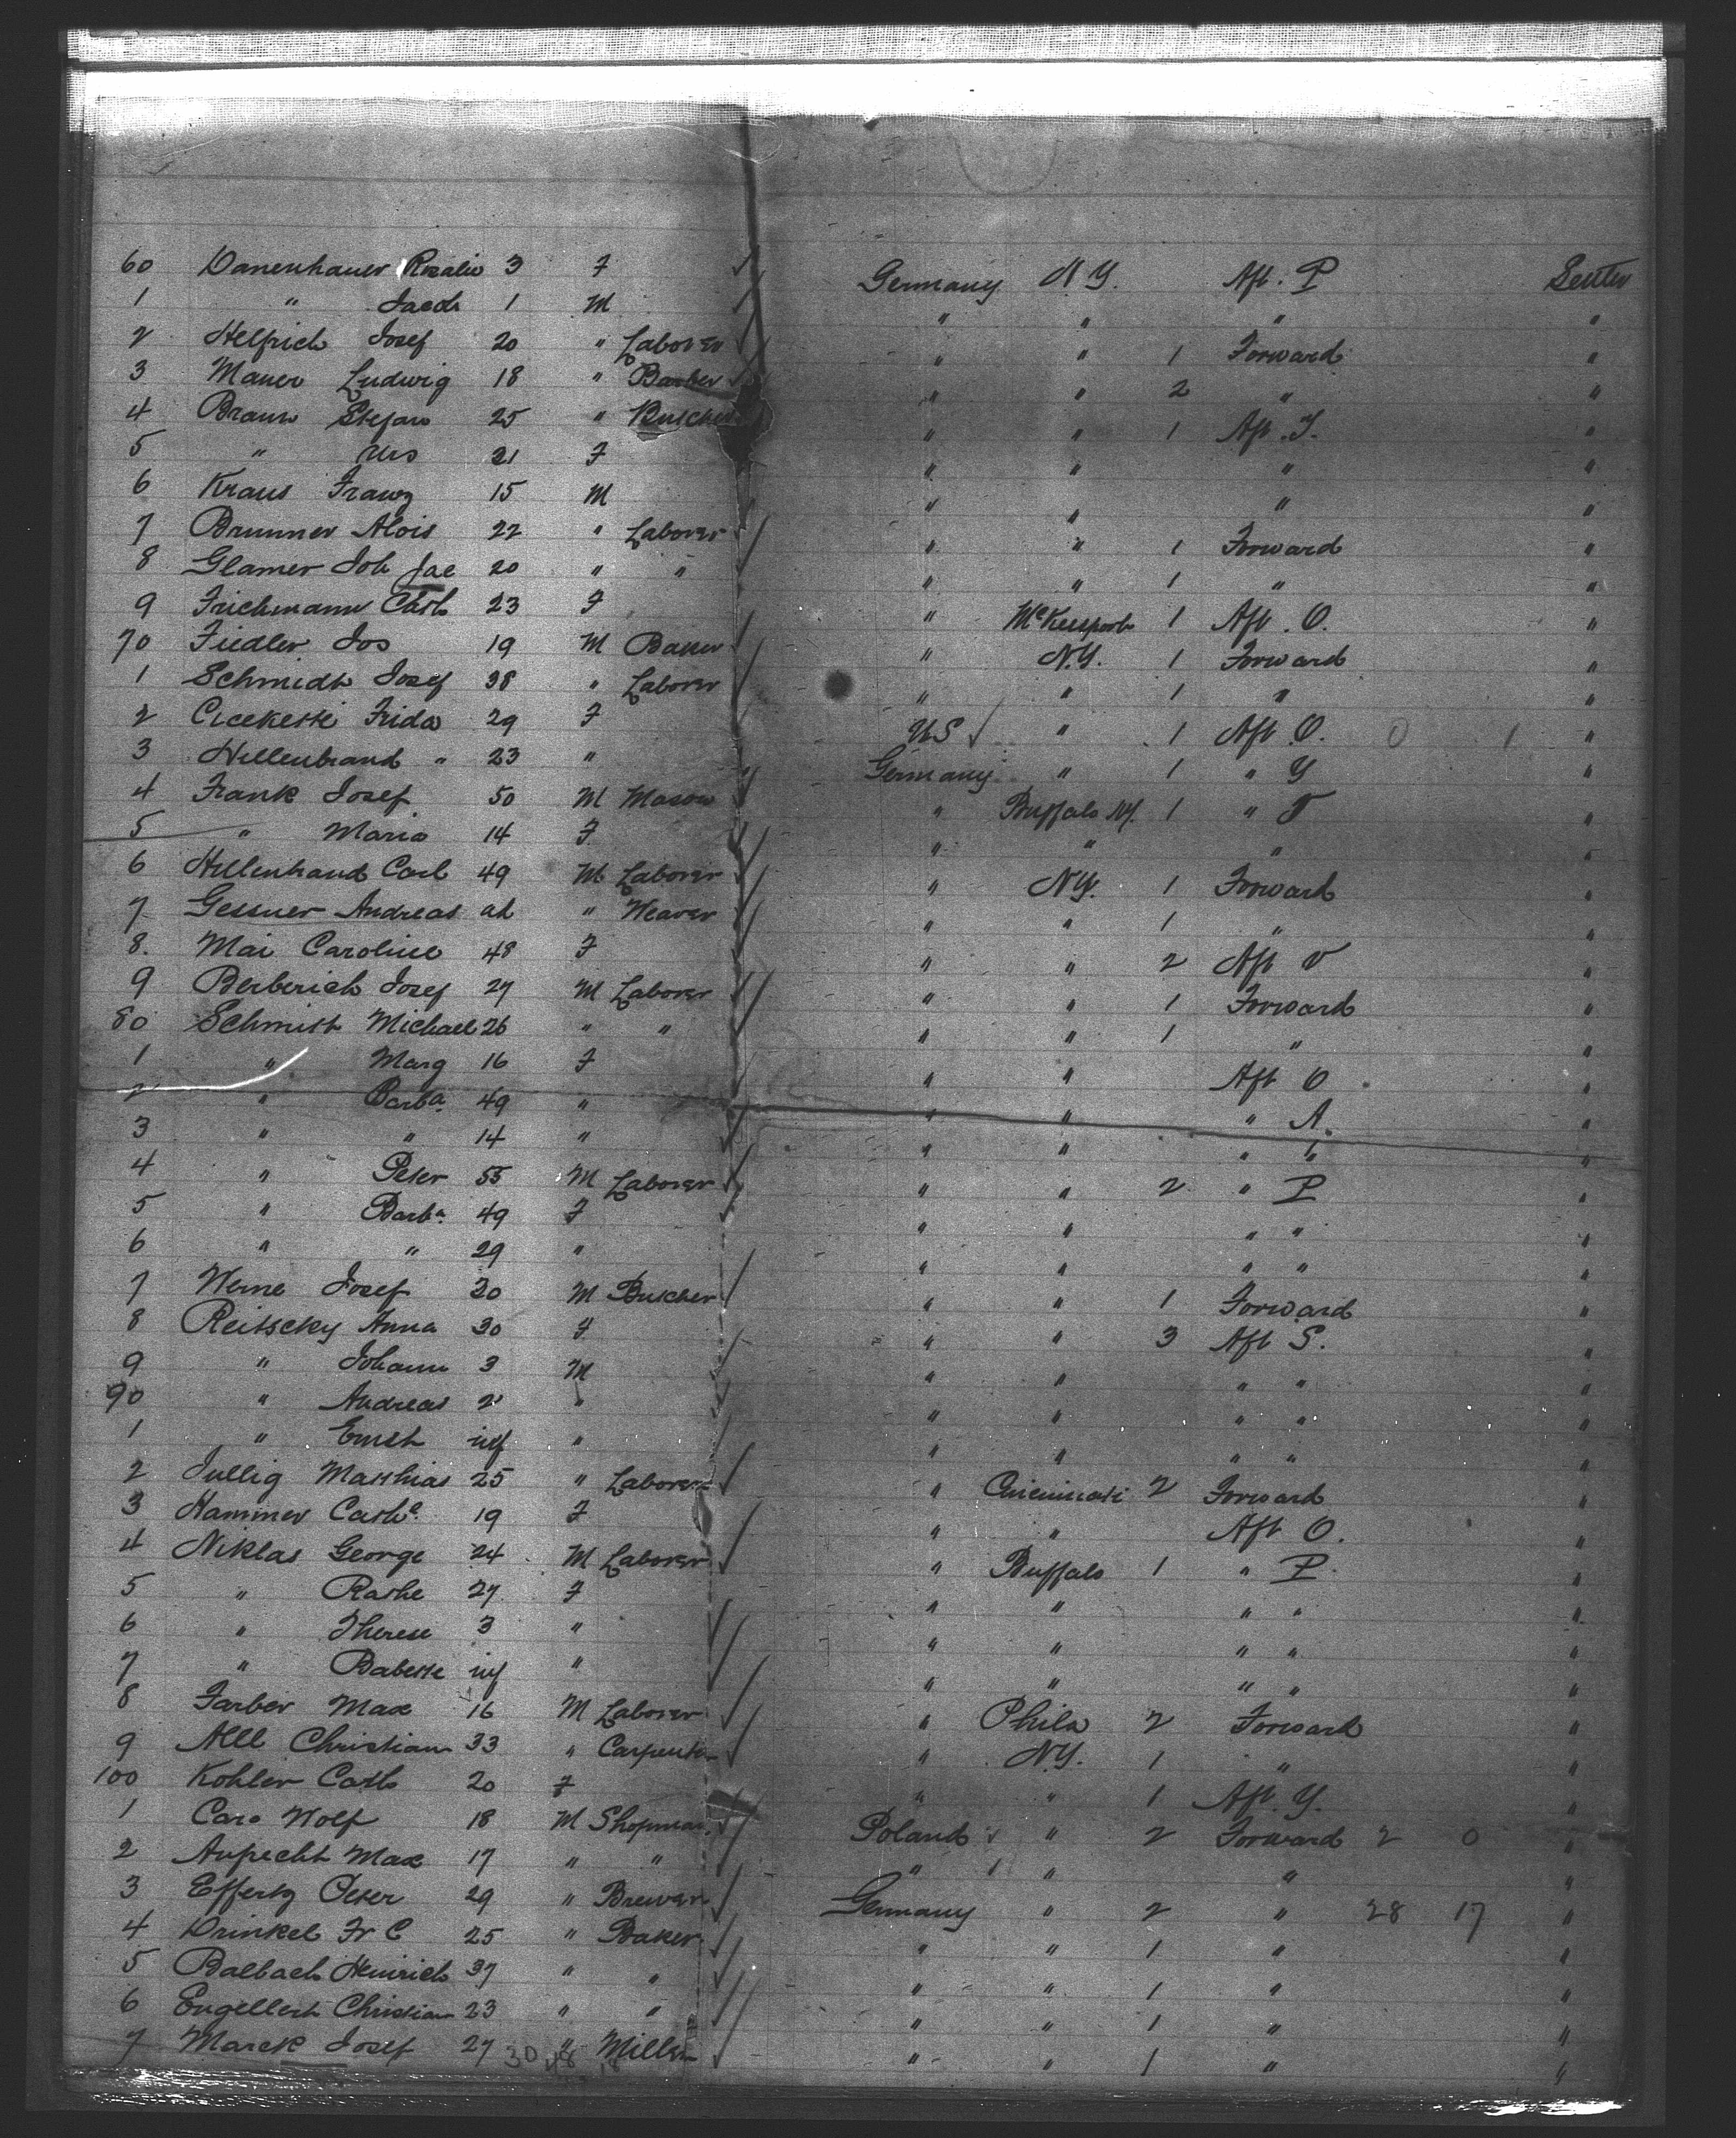 60 Danenhauer Rosalie 3 F Germany N.Y. Aft. P Settler
1 " Jacob 1 M " " " "
2 Helfrich Josef 20 " Laborer " " 1 Forward "
3 Mauer Ludwig 18 " Barber " " 2 " "
4 Braun Stefan 25 " Butcher " " 1 Aft. T. "
5 " Urs 21 F " " " "
6 Kraus Franz 15 M " " " "
7 Brunner Alois 22 " Laborer " " 1 Forward "
8 Glamer Joh Jac 20 " " " " 1 " "
9 Frichmann Cath 23 F " McKeesport 1 Aft. O. "
70 Fiedler Jos 19 M Baker " N.Y. 1 Forward "
1 Schmidt Josef 38 " Laborer " " 1 " "
2 Frida 29 F US " 1 Aft O. 0 1 "
3 Hillenbrand " 23 " Germany " 1 " Y "
4 Frank Josef 50 M Mason " Buffalo NY. 1 " T "
5 " Maria 14 F " " " "
6 Hillenbrand Carl 49 M Laborer " N.Y. 1 Forward "
7 Gessner Andreas " Weaver " " 1 " "
8. Mai Caroline 48 F " " 2 Aft V "
9 Berberich Josef 27 M Laborer " " 1 Forward "
80 Schmitt Michael 26 " " " " 1 " "
1 " Marg 16 F " " Aft O "
2 " Barba. 49 " " " " A. "
3 " " 14 " " " " " "
4 " Peter 55 M Laborer " " 2 " P "
5 " Barba. 49 F " " " " "
6 " " 29 " " " " " "
7 Werne Josef 30 M Butcher " " 1 Forward "
8 Reitscky Anna 30 F " " 3 Aft S. "
9 " Johann 3 M " " " " "
90 " Andreas 2 " " " " " "
1 " Ernst inf " " " " " "
2 Jullig Matthias 25 " Laborer " Cincinnati 2 Forward "
3 Hammer Cathe. 19 F " " Aft O. "
4 Niklas George 24 M Laborer " Buffalo 1 " P. "
5 " Kathe 27 F " " " " "
6 " Therese 3 " " " " " "
7 " Babette inf " " " " " "
8 Farber Max 16 M Laborer " Phila 2 Forward "
9 Christian 33 " Carpenter " N.Y. 1 " "
100 Kohler Cath 20 F " " 1 Aft. Y. "
1 Caro Wolf 18 M Shopman Poland " 2 Forward 2 0 "
2 Auprecht Max 17 " " " " " "
3 Effertz Peter 29 " Brewer Germany " 2 " 28 17 "
4 Drinkel Fr C 25 " Baker " " 1 " "
5 Balbach Heinrich 37 " " " " 1 " "
6 Engellert Christian 23 " " " " 1 " "
7 Marek Josef 27 30 48 " Miller " " 1 " "